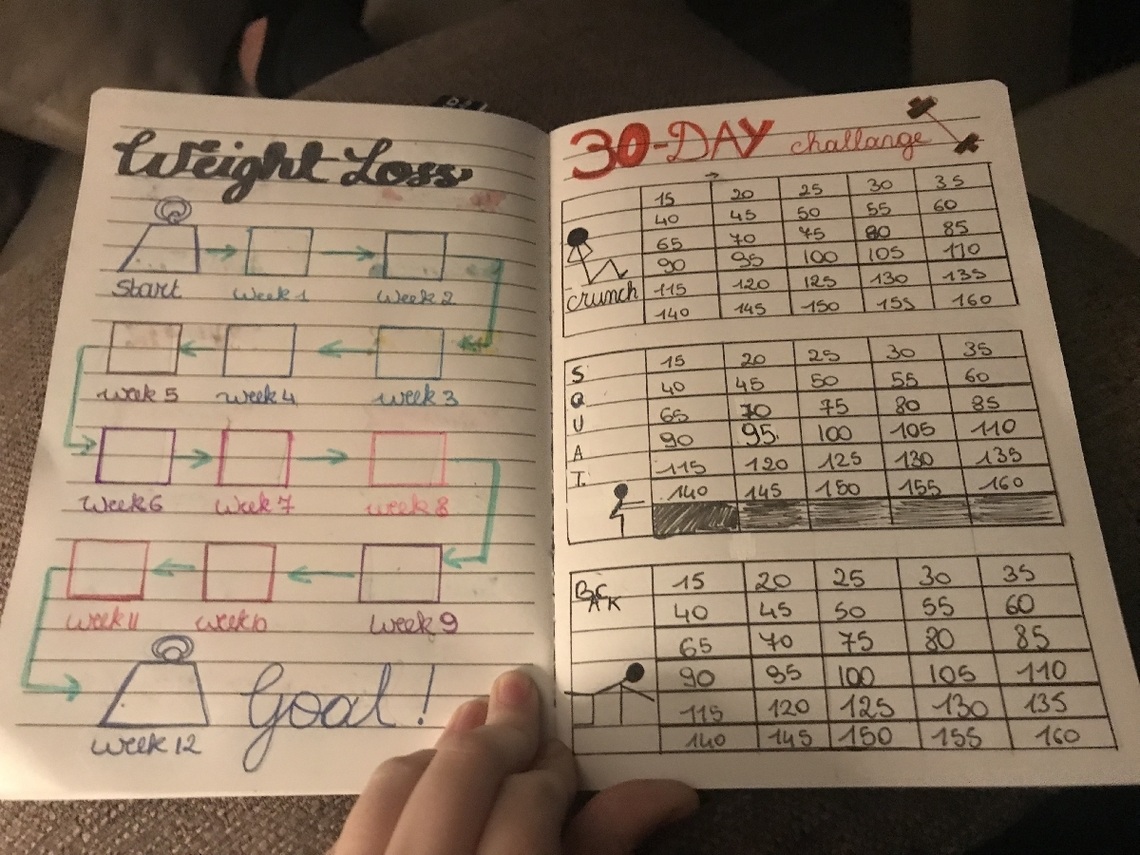 Weight Loss
Start week 1 week 2
week 5 week 4 week 3
week 6 week 7 week 8
week 11 week 10 week 9
Goal!
week 12
30-DAY challange
15 20 25 30 35
40 45 50 55 60
65 70 75 80 85
90 95 100 105 110
crunch 115 120 125 130 135
140 145 150 155 160
S 15 20 25 30 35
Q 40 45 50 55 60
U 65 70 75 80 85
A 90 95 100 105 110
T 115 120 125 130 135
140 145 150 155 160
BACK 15 20 25 30 35
40 45 50 55 60
65 70 75 80 85
90 95 100 105 110
115 120 125 130 135
140 145 150 155 160